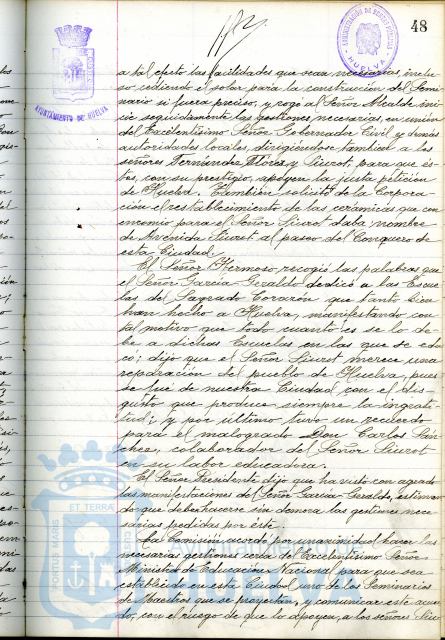 48
AYUNTAMIENTO DE HUELVA
HUELVA
a tal efecto las facilidades que sean necesarias, inclu-
so cediendo el solar para la construcción del Semi-
nario si fuera preciso, y rogó al Señor Alcalde ini-
cie seguidamente las gestiones necesarias, en unión
del Excelentísimo Señor Gobernador Civil y demás
autoridades locales, dirigiéndose también a los
señores Fernández Flórez y Siurot, para que és-
tos, con su prestigio, apoyen la justa petición
de Huelva. También solicitó de la Corpora-
ción el restablecimiento de las cerámicas que con
encomio para el Señor Siurot daba nombre
de Avenida Siurot al paseo del Conquero de
esta Ciudad.
El Señor Hermoso, recogió las palabras que
el Señor García Geraldo dedicó a las Escue-
las del Sagrado Corazón que tanto bien
han hecho a Huelva, manifestando con
tal motivo que todo cuanto es se lo de-
be a dichas Escuelas en las que se edu-
có; dijo que el Señor Siurot merece una
reparación del pueblo de Huelva, pues
se fué de nuestra Ciudad con el dis-
gusto que produce siempre la ingrati-
tud; y por último tuvo un recuerdo
para el malogrado Don Carlos Sán-
chez, colaborador del Señor Siurot
en su labor educadora.
El Señor Presidente dijo que ha visto con agrado
las manifestaciones del Señor García Geraldo, estiman-
do que deben hacerse sin demora las gestiones nece-
sarias pedidas por éste.
La Comisión acordó por unanimidad hacer las
necesarias gestiones cerca del Excelentísimo Señor
Ministro de Educación Nacional para que sea
establecido en esta Ciudad uno de los Seminarios
de Maestros que se proyectan, y comunicar este acuer-
do, con el ruego de que lo apoyen, a los señores Siu-
PORTUS MARIS ET TERRA
HUELVA